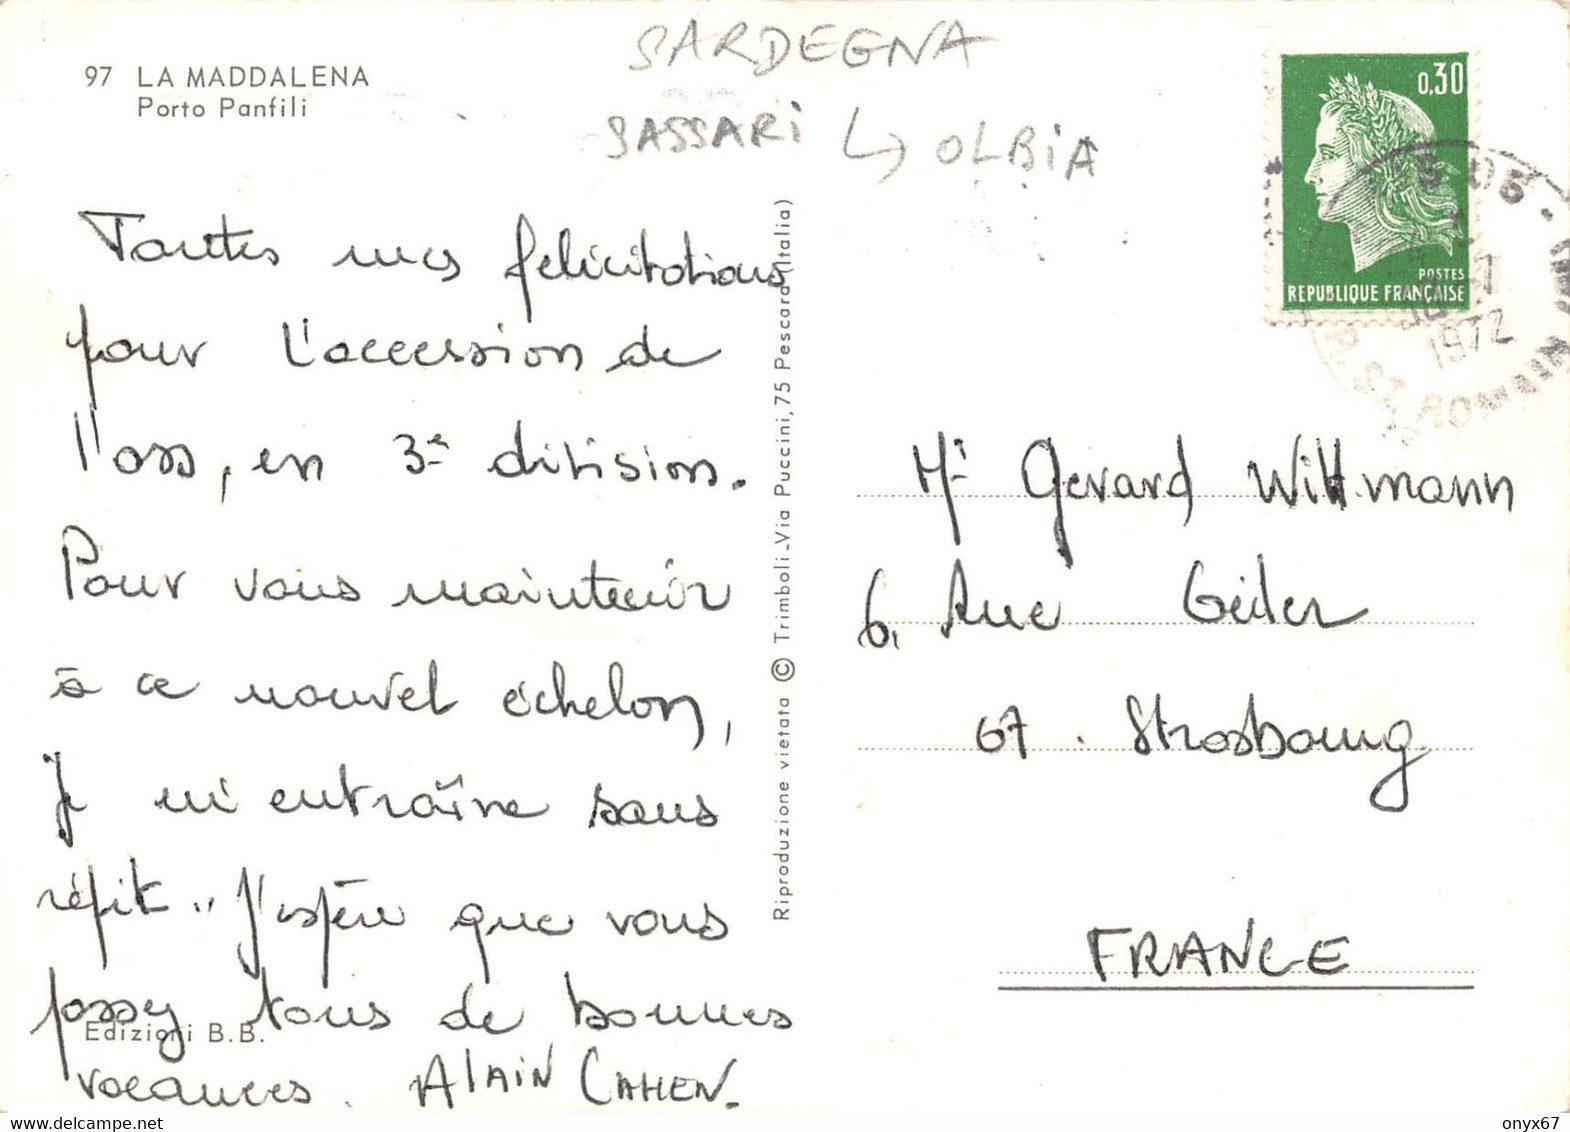 97 LA MADDALENA
Porto Panfili
SARDEGNA
SASSARi ↳ OLBiA
0,30
POSTES
REPUBLIQUE FRANÇAISE
1972
Toutes mes felicitations
pour l'accession de
l'oss, en 3e division.
Pour vous maintenir
à ce nouvel échelon,
Je m'entraîne sans
répit.. J'espère que vous
passez tous de bonnes
vacances. ALAIN CAHEN.
Edizioni B.B.
Riproduzione vietata © Trimboli-Via Puccini,75 Pescara (Italia)
Mr Gerard Wittmann
6, Rue Geiler
67. Strasbourg
FRANCE
onyx67